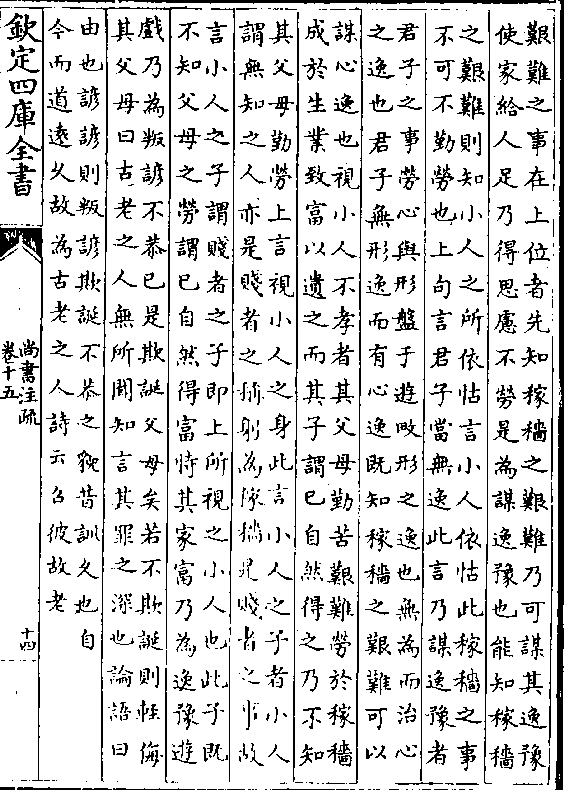 艱難之事在上位者先知稼穡之艱難乃可謀其逸豫
使家給人足乃得思慮不勞是為謀逸豫也能知稼穡
之艱難則知小人之所依怙言小人依怙此稼穡之事
不可不勤勞也上句言君子當無逸此言乃謀逸豫者
君子之事勞心與形盤于遊畋形之逸也無為而治心
之逸也君子無形逸而有心逸既知稼穡之艱難可以
謀心逸也視小人不孝者其父母勤苦艱難勞於稼穡
成於生業致富以遺之而其子謂已自然得之乃不知
其父母勤勞上言視小人之身此言小人之子者小人
謂無知之人亦是賤者之稱躬為稼穡是賤者之事故
言小人之子謂賤者之子即上所視之小人也此子既
不知父母之勞謂已自然得富恃其家富乃為逸豫遊
戲乃為叛諺不恭已是欺誕父母矣若不欺誕則輕侮
其父母曰古老之人無所聞知言其罪之深也論語曰
由也諺諺則叛諺欺誕不恭之貌昔訓久也自
今而道遠久故為古老之人詩云召彼故老
欽定四庫全書
尚書注疏
卷十五
十四